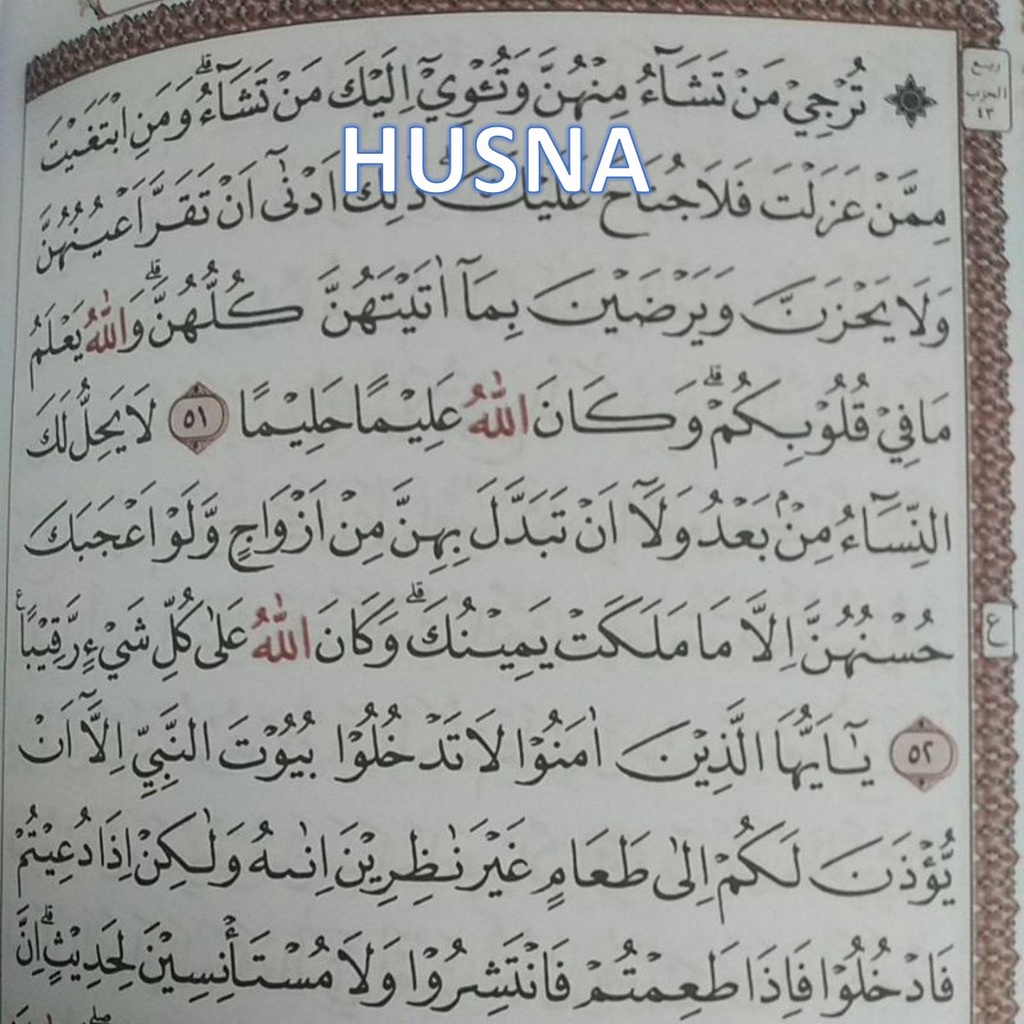 تُرْجِيْ مَنْ تَشَاۤءُ مِنْهُنَّ وَتُـْٔوِيْٓ اِلَيْكَ مَنْ تَشَاۤءُۗ وَمَنِ ابْتَغَيْتَ
HUSNA
مِمَّنْ عَزَلْتَ فَلَا جُنَاحَ عَلَيْكَۗ ذٰلِكَ اَدْنٰٓى اَنْ تَقَرَّ اَعْيُنُهُنَّ
وَلَا يَحْزَنَّ وَيَرْضَيْنَ بِمَآ اٰتَيْتَهُنَّ كُلُّهُنَّۗ وَاللّٰهُ يَعْلَمُ
مَا فِيْ قُلُوْبِكُمْۗ وَكَانَ اللّٰهُ عَلِيْمًا حَلِيْمًا ٥١ لَا يَحِلُّ لَكَ
النِّسَاۤءُ مِنْۢ بَعْدُ وَلَآ اَنْ تَبَدَّلَ بِهِنَّ مِنْ اَزْوَاجٍ وَّلَوْ اَعْجَبَكَ
حُسْنُهُنَّ اِلَّا مَا مَلَكَتْ يَمِيْنُكَۗ وَكَانَ اللّٰهُ عَلٰى كُلِّ شَيْءٍ رَّقِيْبًا ࣖ
٥٢ يٰٓاَيُّهَا الَّذِيْنَ اٰمَنُوْا لَا تَدْخُلُوْا بُيُوْتَ النَّبِيِّ اِلَّآ اَنْ
يُّؤْذَنَ لَكُمْ اِلٰى طَعَامٍ غَيْرَ نٰظِرِيْنَ اِنٰىهُ وَلٰكِنْ اِذَا دُعِيْتُمْ
فَادْخُلُوْا فَاِذَا طَعِمْتُمْ فَانْتَشِرُوْا وَلَا مُسْتَأْنِسِيْنَ لِحَدِيْثٍۗ اِنَّ
ربع
الحزب
٤٣
ع